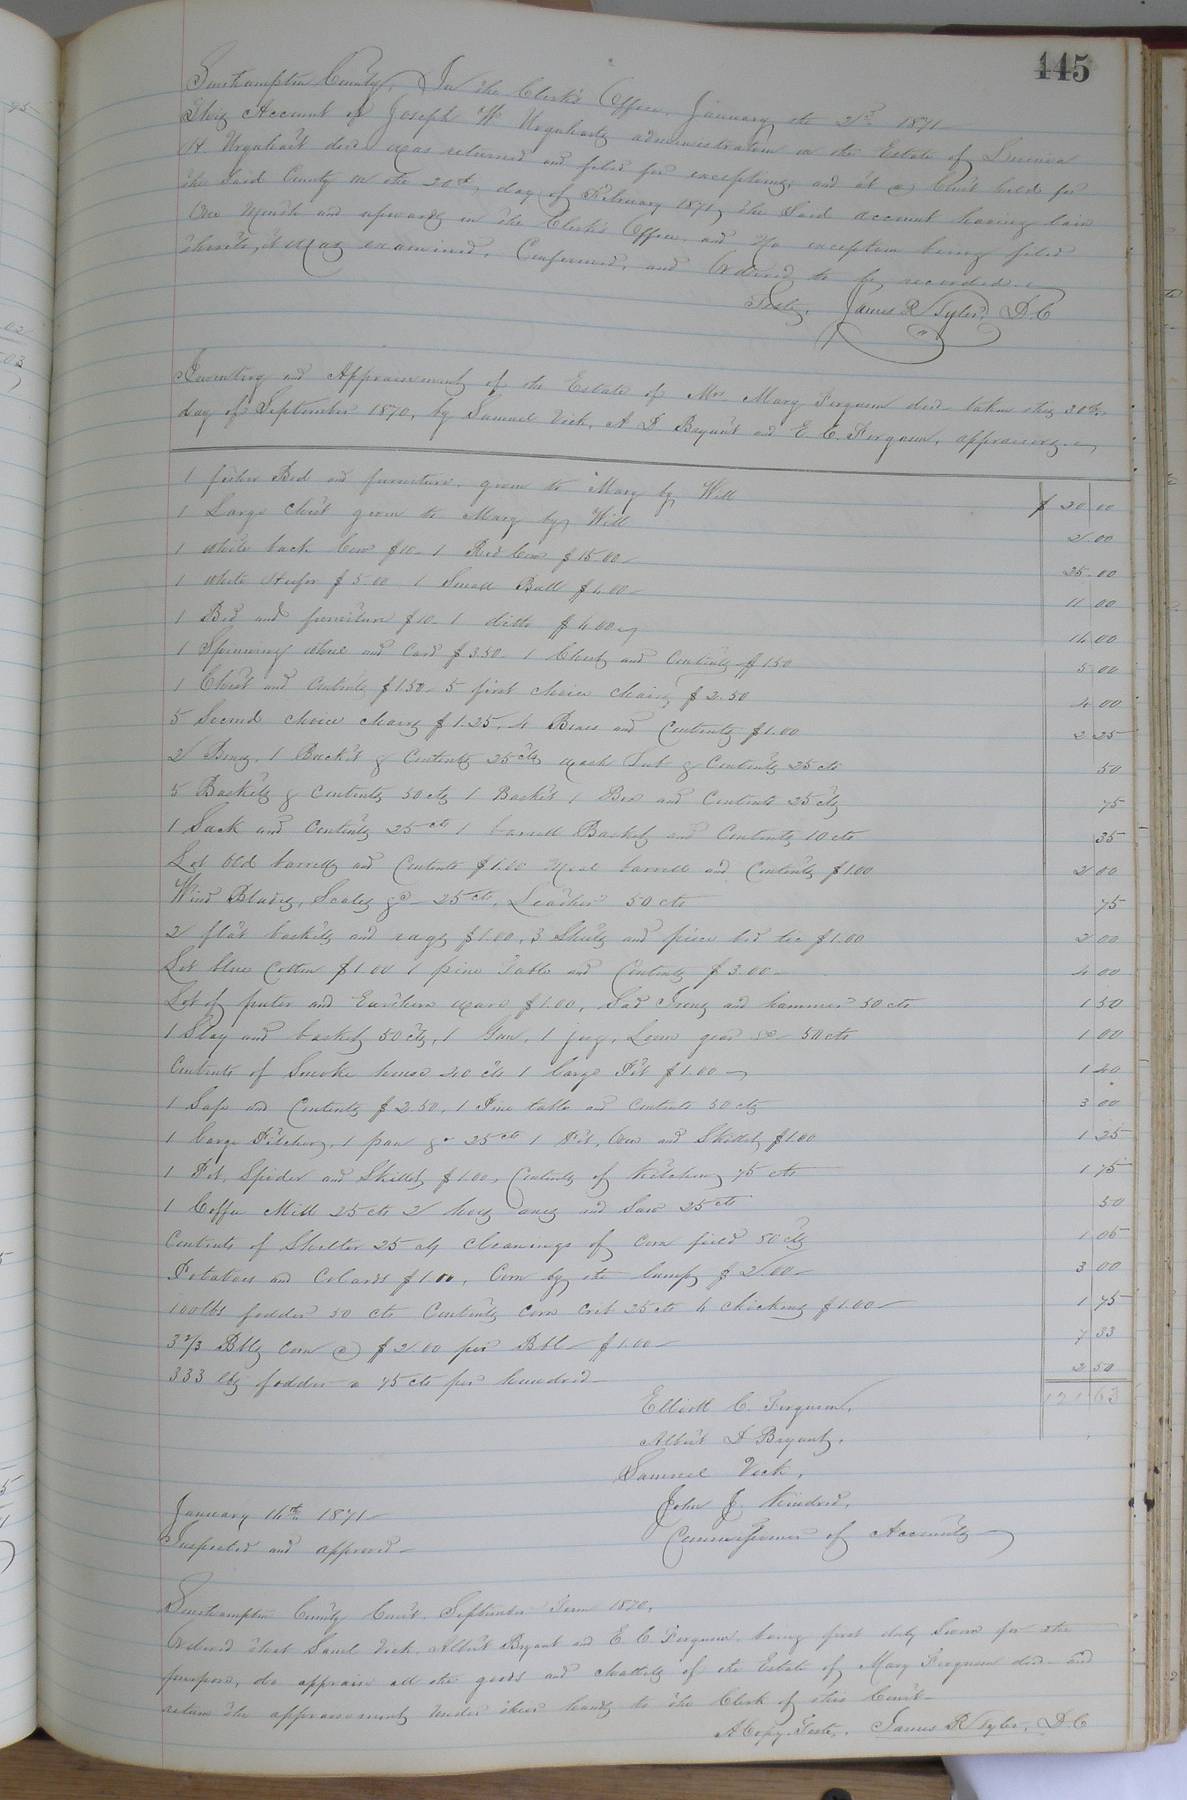 445
Southampton County, In the Clerk's Office, January the 21st 1871
This Account of Joseph W Urquhart administrator on the Estate of
H Urquhart decd was returned and filed for exceptions, and at a Court held for
the Said County on the 20th day of February 1871, the Said account having lain
One Month and upwards in the Clerk's Office, and No exception being filed
thereto, it was examined, Confirmed, and Ordered to be recorded.
Teste, James R Tyler, D.C
Inventory and Appraisement of the Estate of Mrs Mary Ferguson decd taken this 30th
day of September 1870, by Samuel Vick, A D Bryant and E. C. Ferguson, appraisers.
1 fether Bed and furniture given to Mary by Will $ 20 00
1 Large Chest given to Mary by Will 2 00
1 White back Cow $10 1 Red Cow $15.00 25 00
1 White Heifer $5.00 1 Small Bull $6.00 11 00
1 Bed and furniture $10 1 ditto $4.00 14 00
1 Spinning Wheel and Card $3.50 1 Chest and Contents $1.50 5 00
1 Chest and Contents $1.50 5 first choice chairs $2.50 4 00
5 Second choice chairs $1.25, 4 Boxes and Contents $1.00 2 25
2 1 Bucket & Contents 25cts wash Tub & Contents 25 cts 50
5 Baskets & Contents 50 cts 1 Basket 1 Box and Contents 25 cts 75
1 Sack and Contents 25 cts 1 barrell Basket and Contents 10 cts 35
Lot Old barrells and Contents $1.00 Meal barrell and Contents $1.00 2 00
Wind Blades, Scales &c 25 cts, Leather 50 cts 75
2 flat baskets and rags $1.00, 3 Sheets and piece bed tic $1.00 2 00
Lot blue Cotton $1 00 1 pine Table and Contents $3.00 4 00
Lot of puter and Earthern ware $1.00, Sad Irons and hammer 50 cts 1 50
1 Slay and basket 50 cts, 1 Gun, 1 jug, Loom gear &c 50 cts 1 00
Contents of Smoke house 40 cts 1 large Pot $1.00 1 40
1 Safe and Contents $2.50, 1 Pine table and Contents 50 cts 3 00
1 large Pitcher, 1 pan &c 25 cts 1 Pot, Oven and Skillet $1.00 1 25
1 Pot, Spider and Skillet $1.00, Contents of Kitchen 75 cts 1 75
1 Coffee Mill 25 cts 2 hoes and Saw 25 cts 50
Contents of Shelter 25 cts cleanings of Corn field 50 cts 1 05
Potatoes and Colards $1.00, Corn by the lump $2.00 3 00
100lbs fodder 50 cts Contents corn crib 25 cts 4 chickens $1.00 1 75
3 2/3 Bbls Corn @ $2.00 per Bbl $1.00 7 33
333 lbs fodder a 75 cts per hundred 2 50
121 63
Elliott C. Ferguson,
Albert D Bryant,
Samuel Vick,
January 14th 1871
John J. Kindred,
Inspected and approved
Commissioner of Accounts
Southampton County Court, September Term 1870,
Ordered that Saml Vick, Albert Bryant and E C Ferguson, being first duly Sworn for the
purpose, do appraise all the goods and chattels of the Estate of Mary Ferguson decd and
return the appraisement under their hands to the Clerk of this Court
A Copy Teste, James R Tyler, D.C